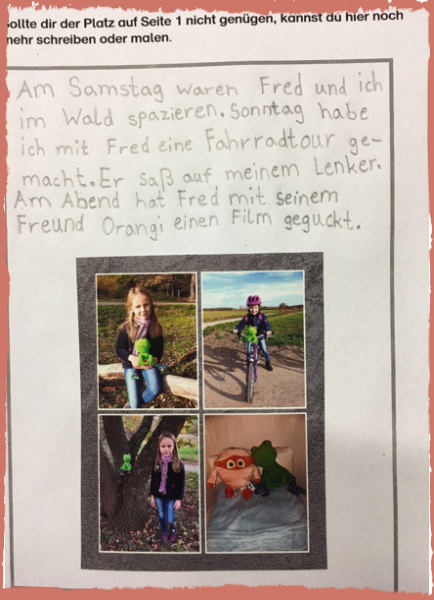 ollte dir der Platz auf Seite 1 nicht genügen, kannst du hier noch
mehr schreiben oder malen.
Am Samstag waren Fred und ich
im Wald spazieren. Sonntag habe
ich mit Fred eine Fahrradtour ge-
macht. Er saß auf meinem Lenker.
Am Abend hat Fred mit seinem
Freund Orangi einen Film geguckt.